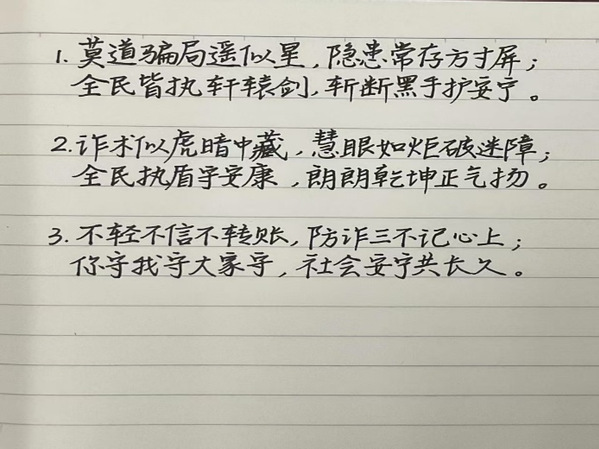 1. 莫道骗局遥似星，隐患常存方寸屏；
全民皆执轩辕剑，斩断黑手护安宁。
2. 诈术似虎暗中藏，慧眼如炬破迷障；
全民执盾守安康，朗朗乾坤正气扬。
3. 不轻不信不转账，防诈三不记心上；
你守我守大家守，社会安宁共长久。